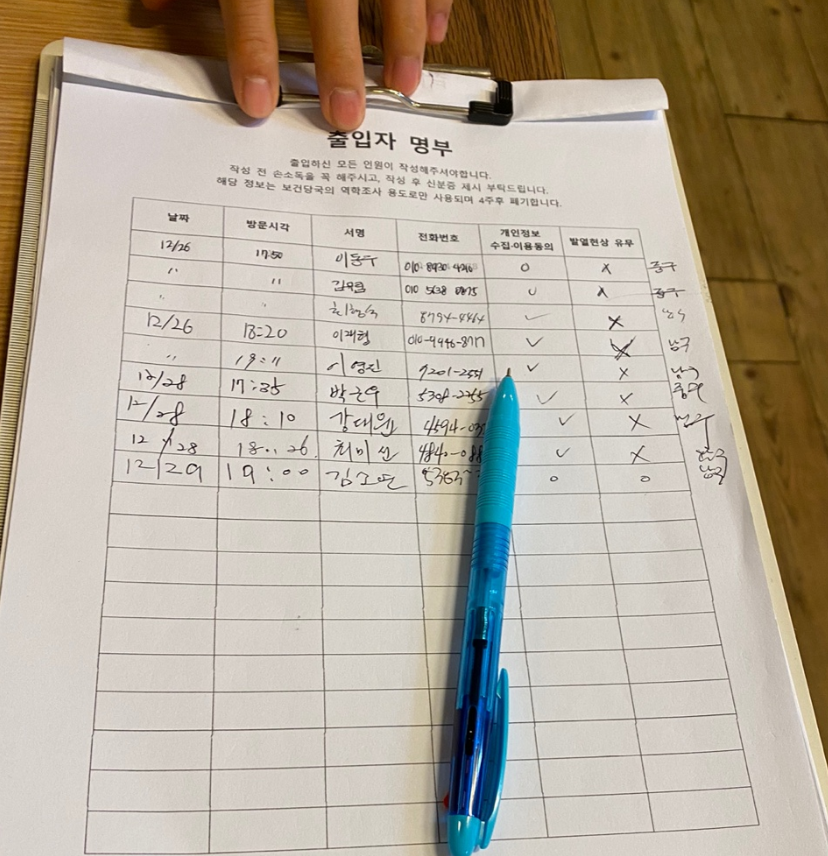 출입자 명부
출입하신 모든 인원이 작성해주셔야합니다.
작성 전 손소독을 꼭 해주시고, 작성 후 신분증 제시 부탁드립니다.
해당 정보는 보건당국의 역학조사 용도로만 사용되며 4주후 폐기합니다.
날짜 방문시각 서명 전화번호 개인정보 수집·이용동의 발열현상 유무
12/26 17:50 이동우 O X 중구
〃 〃 X 중구
8794-4464 ✓ X
12/26 18:20 이재형 ✓ X 남구
〃 이영진 7201-2551 ✓ X 남구
12/28 17:35 박근우 ✓ X 중구
12/28 18:10 강대원 4594-03 ✓ X
12/28 18:26 최미선 4840-088 ✓ X
12/29 19:00 5363 o o 남구